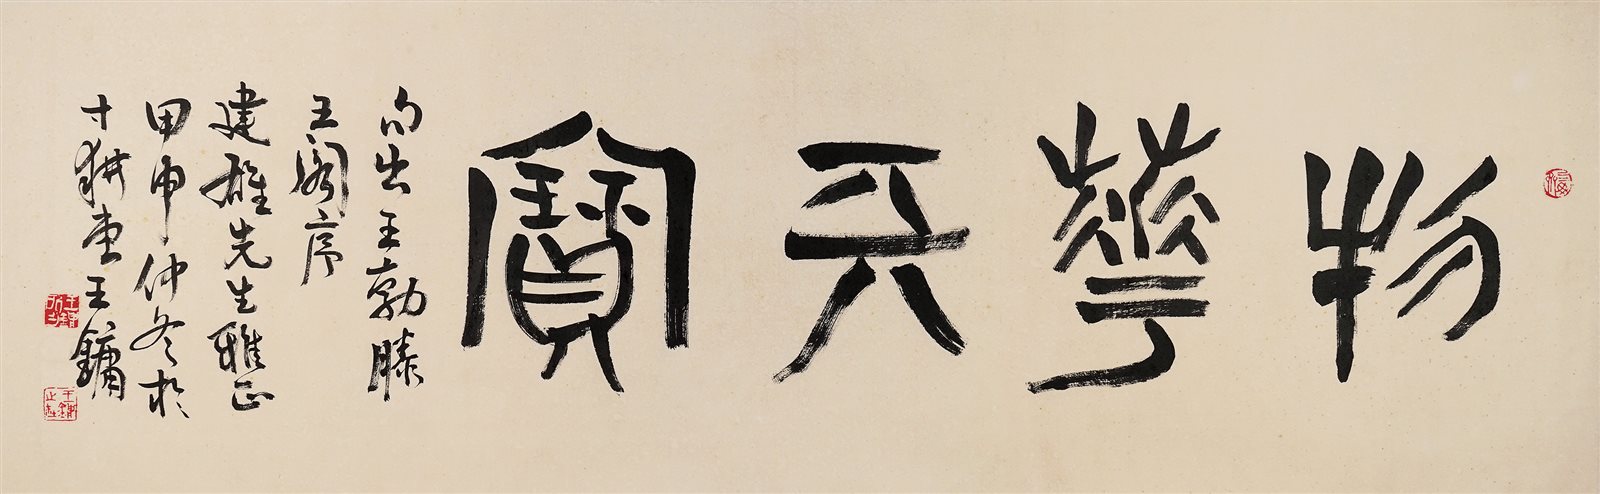 物華天寶
句出王勃滕
王閣序
建雄先生雅正
甲申仲冬於
寸耕堂王鏞